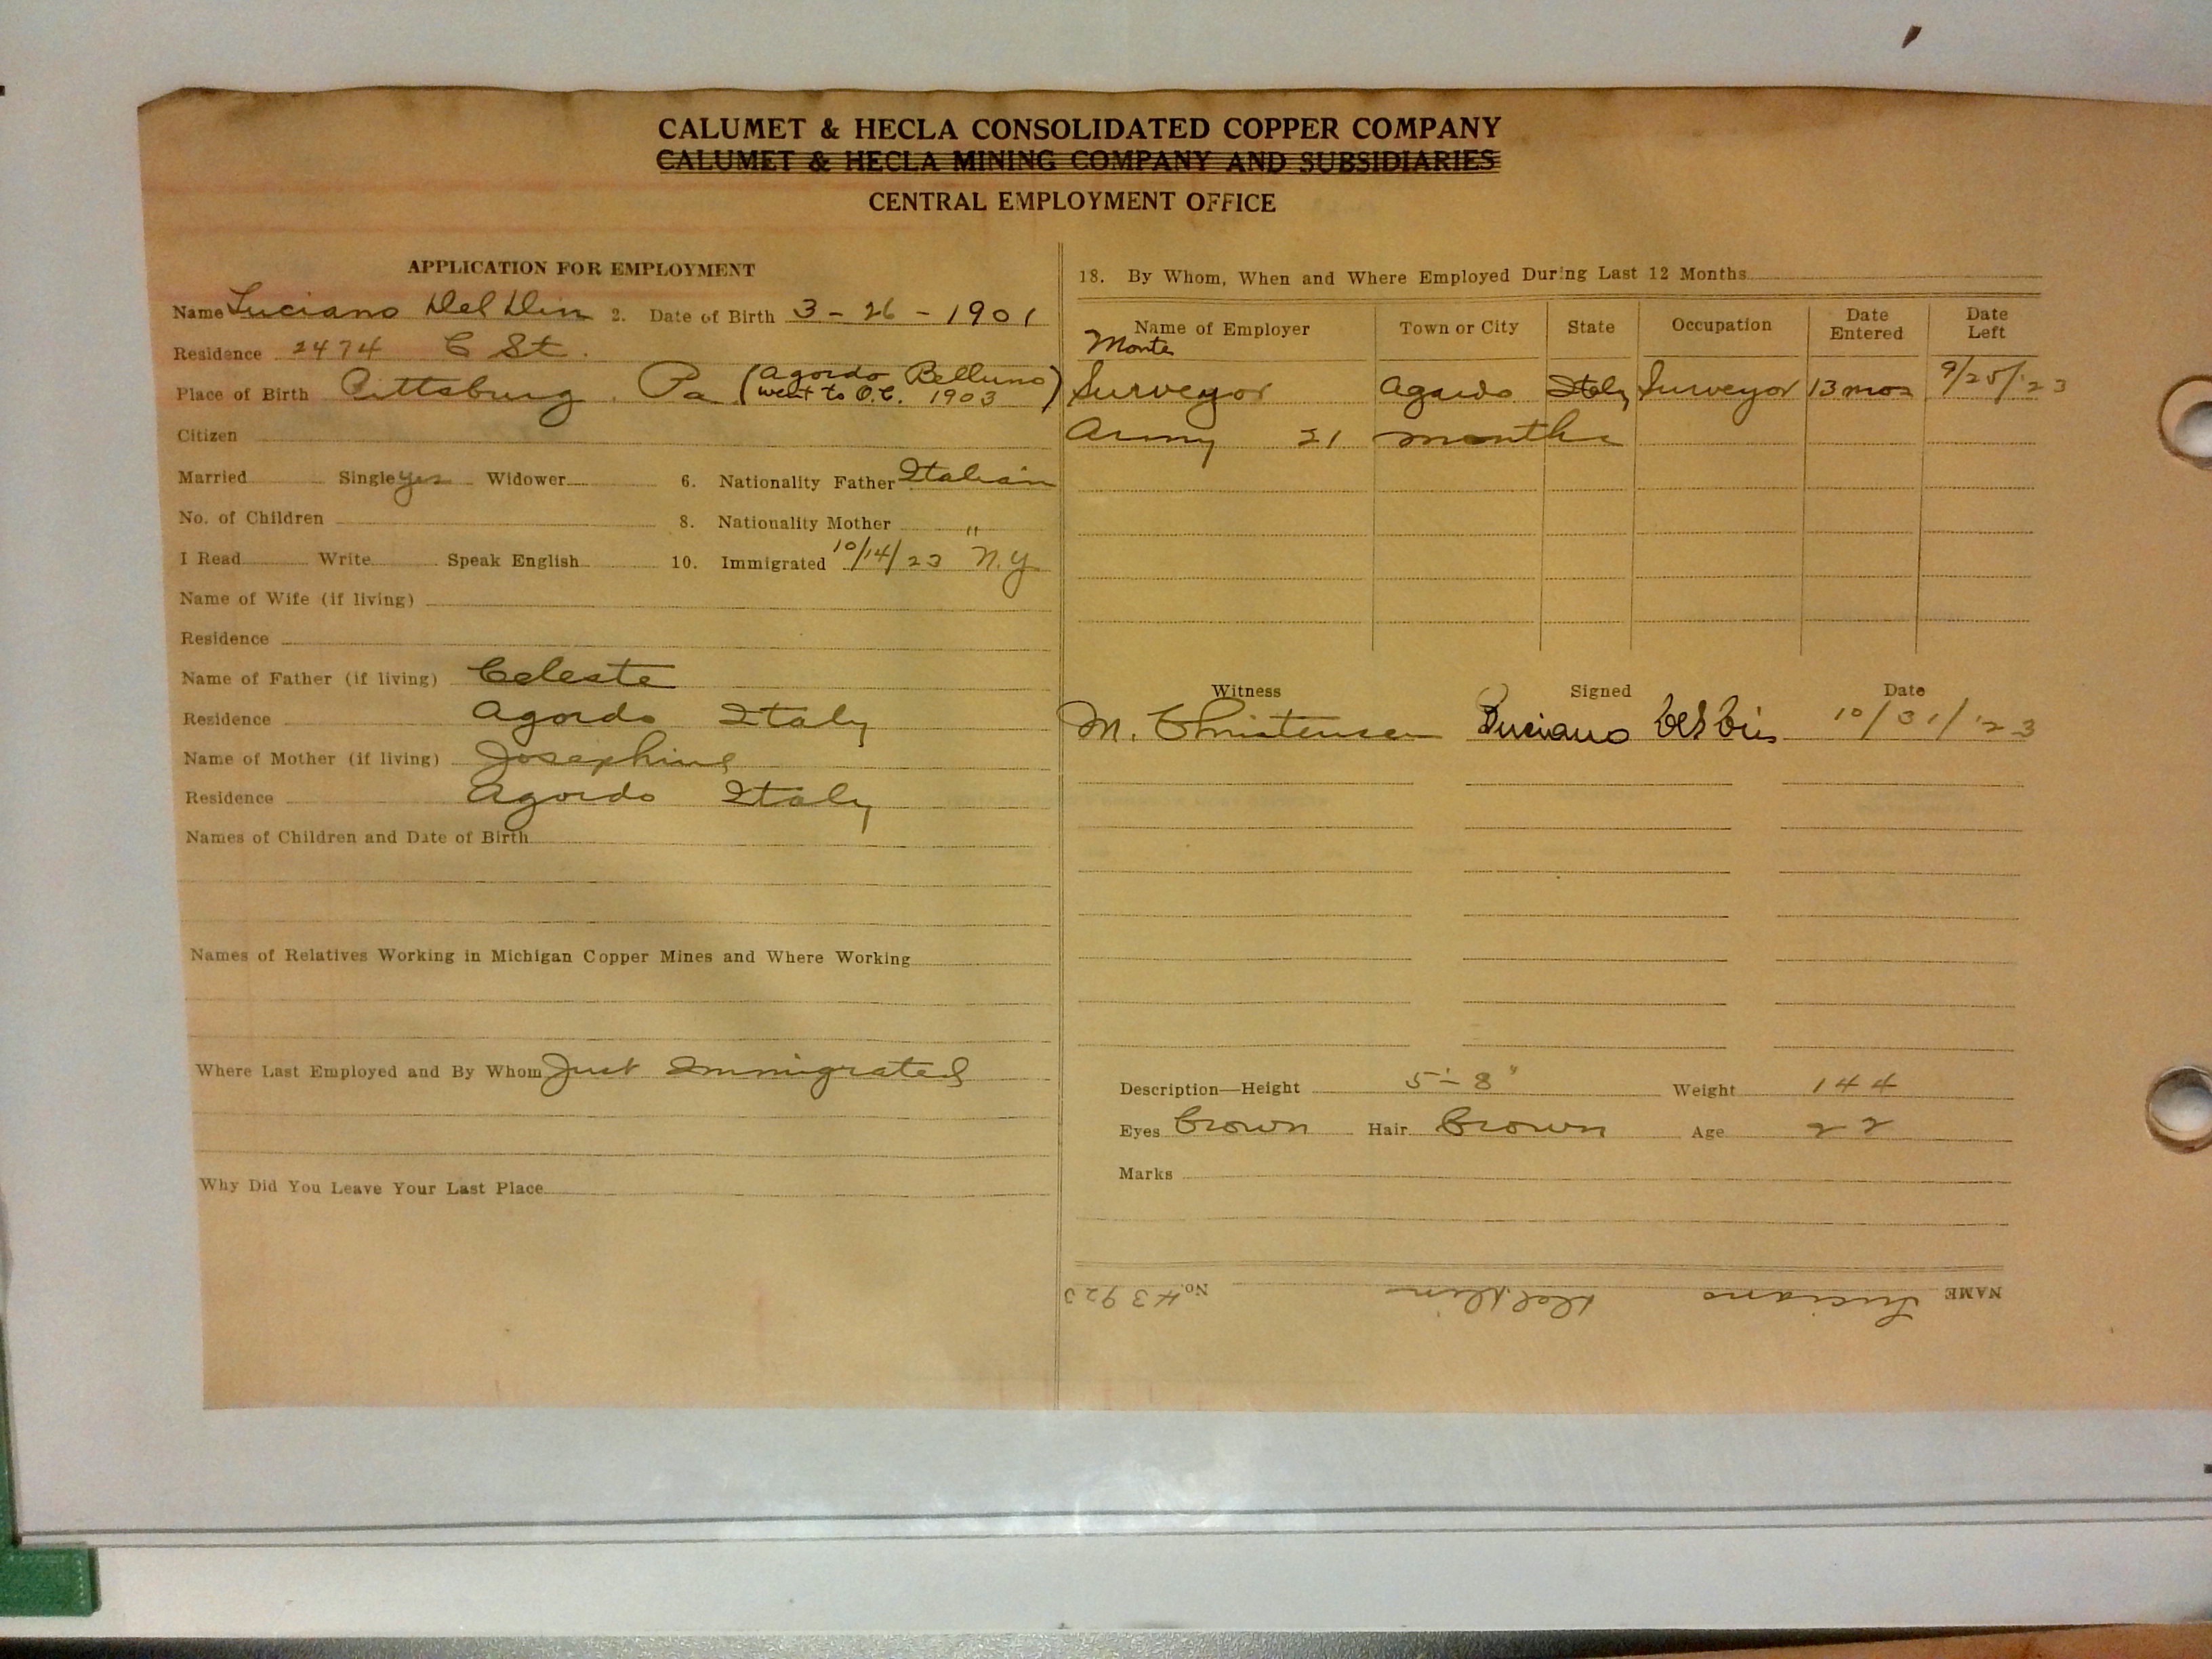 CALUMET & HECLA CONSOLIDATED COPPER COMPANY
CALUMET & HECLA MINING COMPANY AND SUBSIDIARIES
CENTRAL EMPLOYMENT OFFICE
APPLICATION FOR EMPLOYMENT
Name Luciano Del Din 2. Date of Birth 3-26-1901
Residence 2474 C St.
Place of Birth Pittsburg, Pa (Agordo Belluno
went to O.C. 1903)
Citizen
Married Single yes Widower 6. Nationality Father Italian
No. of Children 8. Nationality Mother "
I Read Write Speak English 10. Immigrated 10/14/23 N.Y
Name of Wife (if living)
Residence
Name of Father (if living) Celeste
Residence Agordo Italy
Name of Mother (if living) Josephine
Residence Agordo Italy
Names of Children and Date of Birth
Names of Relatives Working in Michigan Copper Mines and Where Working
Where Last Employed and By Whom Just Immigrated
Why Did You Leave Your Last Place
18. By Whom, When and Where Employed During Last 12 Months
Name of Employer Town or City State Occupation Date Entered Date Left
Monte
Surveyor Agordo Italy Surveyor 13 mos 9/25/'23
Army 21 months
Witness Signed Date
M. Christensen Luciano Del Din 10/31/'23
Description—Height 5'-8" Weight 144
Eyes Brown Hair Brown Age 22
Marks
NAME Luciano Del Din No. 43923